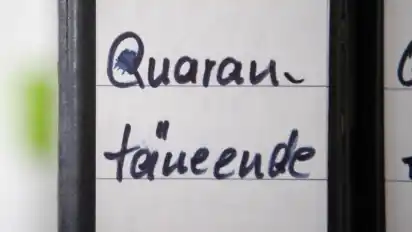 Quaran-
täneende